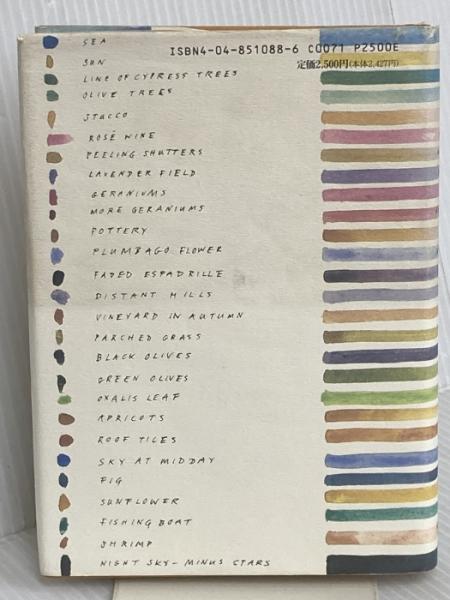 SEA
ISBN4-04-851088-6 C0071 P2500E
SUN
定価2,500円(本体2,427円)
LINE OF CYPRESS TREES
OLIVE TREES
STUCCO
ROSÉ WINE
PEELING SHUTTERS
LAVENDER FIELD
GERANIUMS
MORE GERANIUMS
POTTERY
PLUMBAGO FLOWER
FADED ESPADRILLE
DISTANT HILLS
VINEYARD IN AUTUMN
PARCHED GRASS
BLACK OLIVES
GREEN OLIVES
OXALIS LEAF
APRICOTS
ROOF TILES
SKY AT MIDDAY
FIG
SUNFLOWER
FISHING BOAT
SHRIMP
NIGHT SKY - MINUS STARS